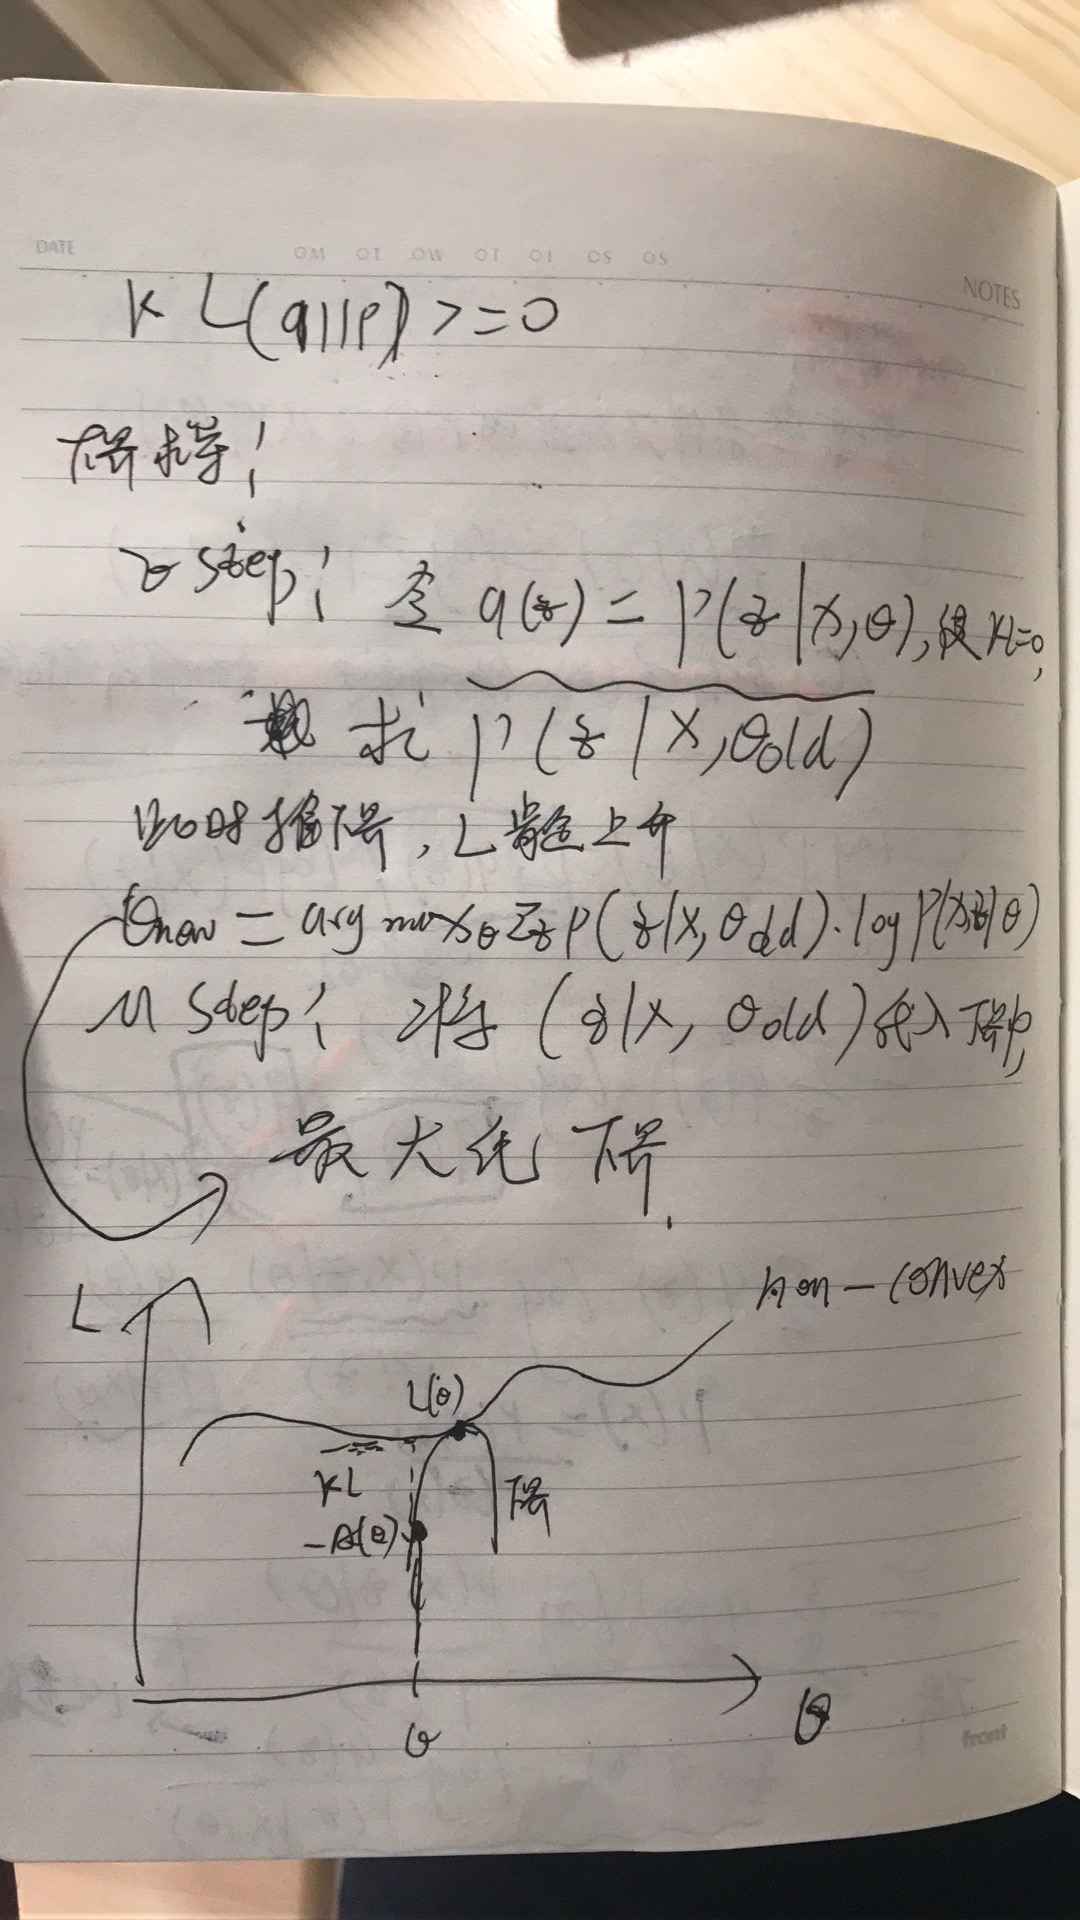 DATE
NOTES
KL(q||p) >= 0
下界求导!
E step: 令 q(z) = P(z|x,θ), 使KL=0,
求 P(z|x,θold)
此时推下界, L肯定上升
θnew = arg maxθ Σz P(z|x, θold)·log P(x,z|θ)
M step: 将 (z|x, θold) 代入下界中,
最大化 下界.
non-convex
L
L(θ)
KL
下界
θ
θ
front